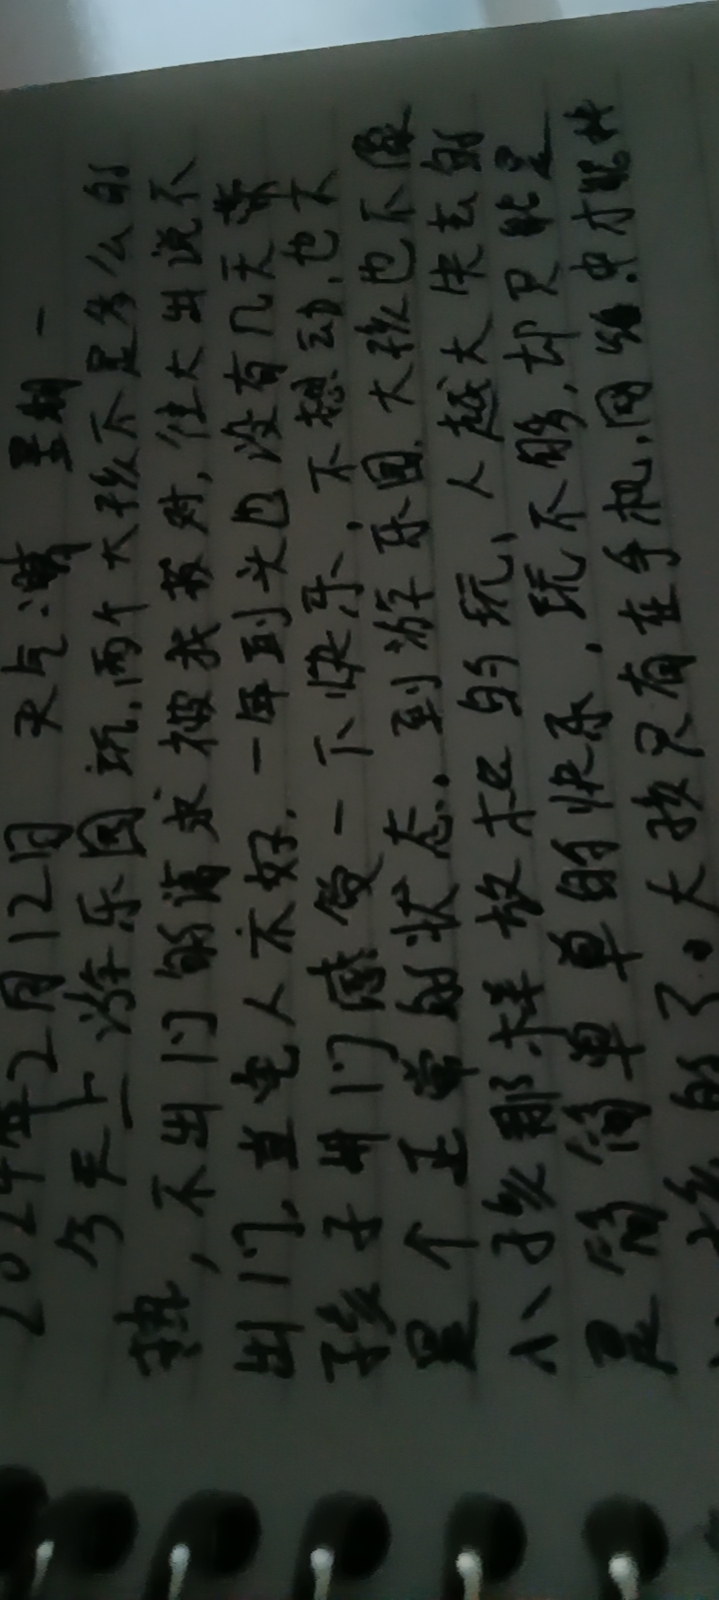 2024年2月12日 天气:晴 星期一
今天上游乐园玩,两个大孩不是多么的
热,不出门的请求被我拒对,往大出说不
出门,宜宅人不好.一年到头也没有几天带
孩子出门感受一下快乐,不想动,也不
是个正常的状态.到游乐园,大孩也不像
小孩那样放松的玩,人越大快去的
是简简单单的快乐.玩不够,却只能是
了。大孩只有在手机,网络中才能找